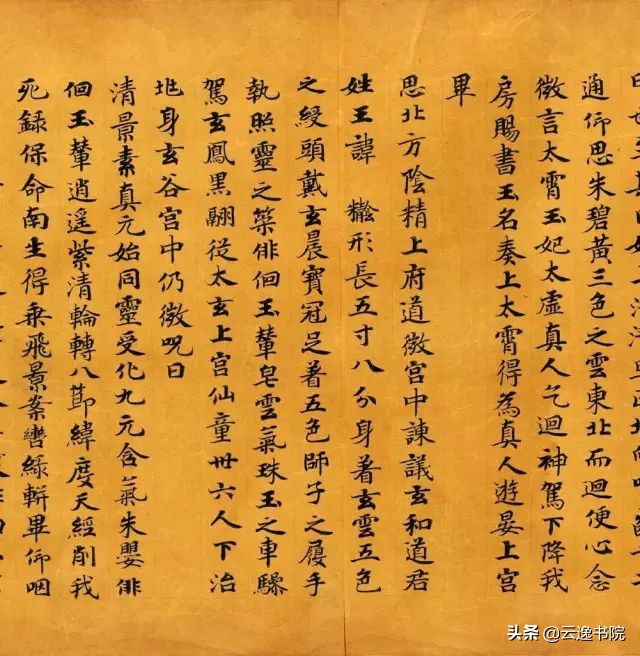 通仰思朱碧黃三色之雲東北而迴便心念
微言太霄玉妃太虛真人乞迴神駕下降我
房賜書玉名奏上太霄得為真人遊晏上宮
畢
思北方陰精上府道微宮中諫議玄和道君
姓王諱 形長五寸八分身著玄雲五色
之綬頭戴玄晨寶冠足著五色師子之履手
執照靈之策俳佪玉輦皂雲氣珠玉之車驂
駕玄鳳黑翮從太玄上宮仙童卅六人下治
兆身玄谷宮中仍微呪曰
清景素真元始同靈受化九元含氣朱嬰俳
佪玉輦逍遙紫清輪轉八節緯度天經削我
死錄保命南生得乘飛景案轡綠軿畢仰咽
头条 @云逸书院